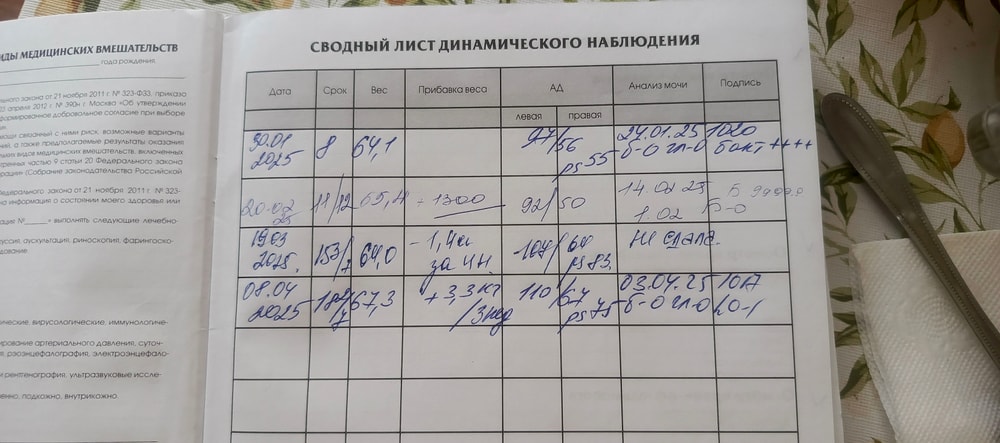 ИДЫ МЕДИЦИНСКИХ ВМЕШАТЕЛЬСТВ
года рождения,
льного закона от 21 ноября 2011 г. № 323-ФЗ, приказа
23 апреля 2012 г. № 390н г. Москва «Об утверждении
формированное добровольное согласие при выборе
мощи связанный с ними риск, возможные варианты
й, а также предполагаемые результаты оказания
видов медицинских вмешательств, включенных
частью 9 статьи 20 Федерального закона
(Собрание законодательства Российской
едерального закона от 21 ноября 2011 г. № 323-
на информация о состоянии моего здоровья или
ацию №_____» выполнять следующие лечебно-
куссия, аускультация, риноскопия, фарингоско-
дование.
ические, вирусологические, иммунологиче-
ирование артериального давления, суточ-
я, рэоэнцефалография, электроэнцефало-
и рентгенография, ультразвуковые иссле-
венно, подкожно, внутрикожно.
СВОДНЫЙ ЛИСТ ДИНАМИЧЕСКОГО НАБЛЮДЕНИЯ
Дата Срок Вес Прибавка веса АД Анализ мочи Подпись
левая правая
30.01 2025 8 64,1 97/56 ps 55 24.01.25 1020 б-0 гл-0 бакт ++++
20.02 25 11/12 65,4 + 1300 92/50 14.02.25 1.02 Б-0
19.03 2025. 64,0 - 1,4кг за 4н. 107/60 ps 83. Не сдала.
08.04 2025 67,3 + 3,3 кг /3нед 110/67 ps 75 03.04.25 1017 б-0 гл-0 L0-1